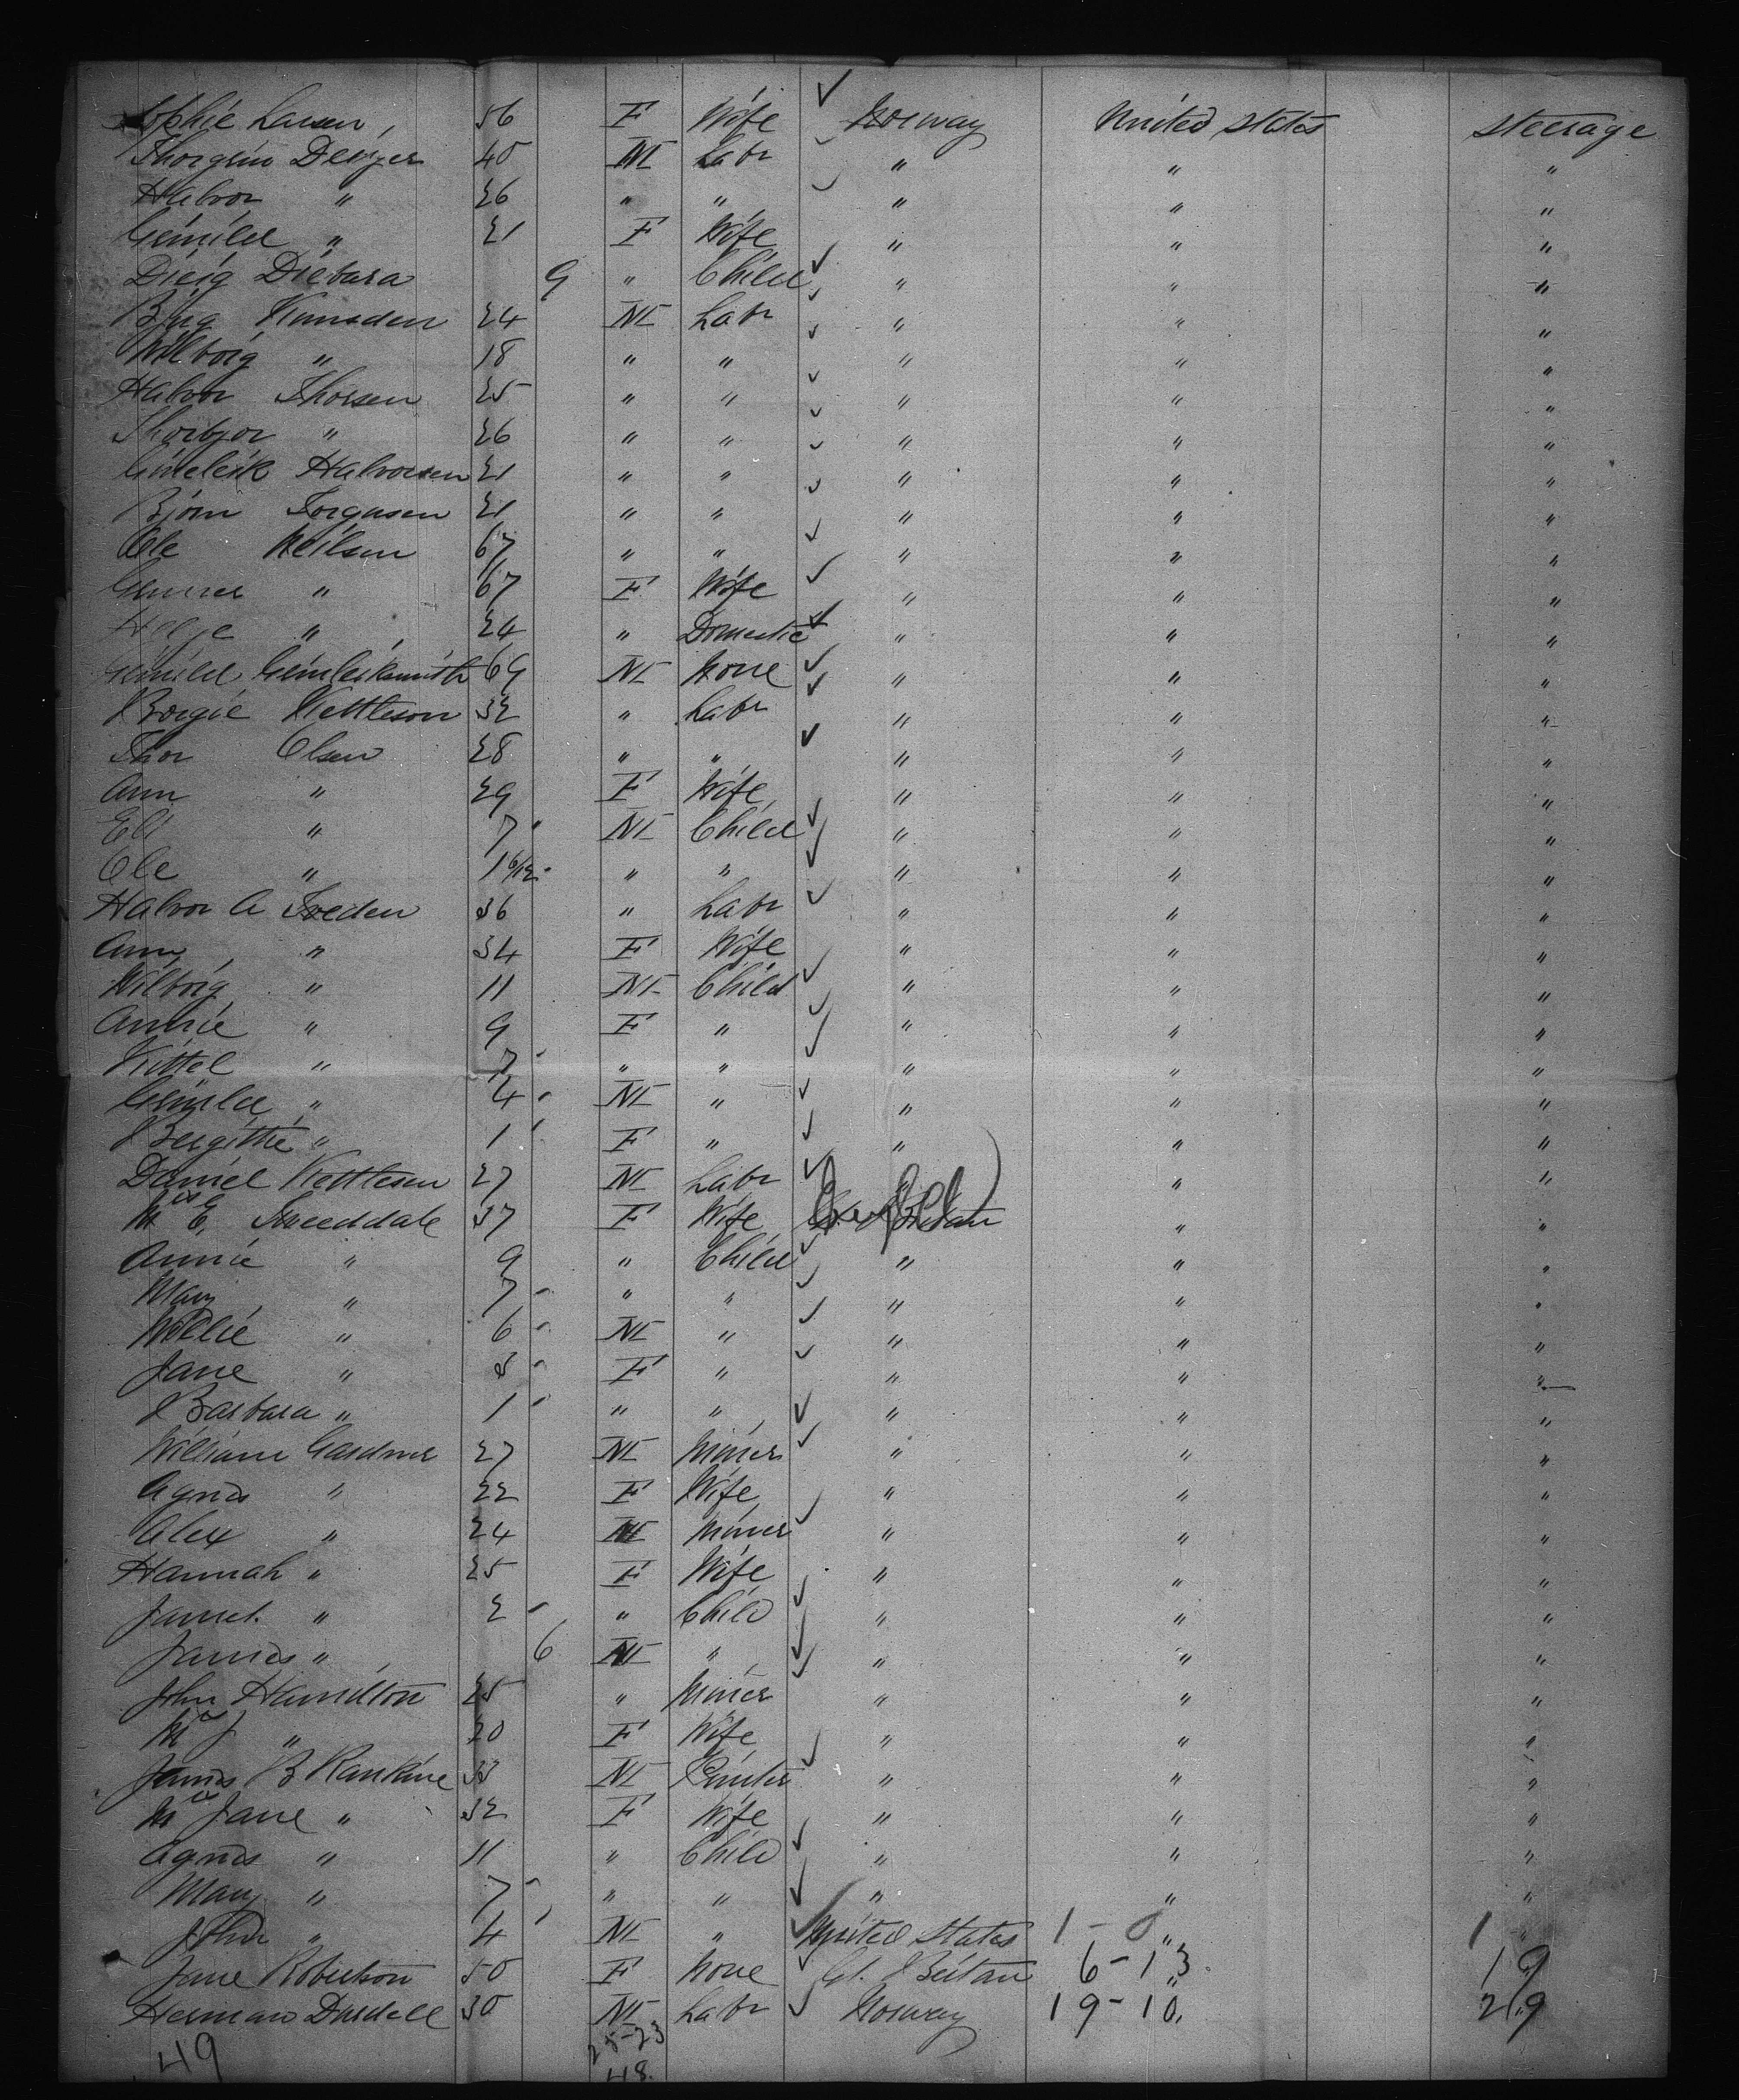 Sophie Larsen, 56 F Wife Norway United States Steerage
Thorgrin Denger 40 M Labr " " "
Halvor " 26 " " " " "
Gunild " 21 F Wife " " "
Dieig Diebara 9 " Child " " "
Knudsen 24 M Labr " " "
Wilborg " 18 " " " " "
Halvor Thorsen 25 " " " " "
Thorbjor " 26 " " " " "
Halvorsen 21 " " " " "
Bjorn Torgusen 21 " " " " "
Ole Neilsen 67 " " " " "
Gunner " 67 F Wife " " "
Helje " 24 " Domestic " " "
Gunild 69 M None " " "
Borgie Kettleson 32 " Labr " " "
Thor Olsen 28 " " " " "
Ann " 29 F Wife " " "
Eli " 7 M Child " " "
Ole " 1 6/12 " " " " "
Halvor A Treden 36 " Labr " " "
Ann " 34 F Wife " " "
Wilborg " 11 M Child " " "
Annie " 9 F " " " "
Kittel " 7 " " " " "
Gunild " 4 M " " " "
Bergithe " 1 F " " " "
Daniel Kettlesen 27 M Labr " " "
Mrs E. Tweeddale 37 F Wife Gt Britain " "
Annie " 9 " Child " " "
Mary " 7 " " " " "
Willie " 6 M " " " "
Jane " 3 F " " " "
Barbara " 1 " " " " "
William Gardner 27 M Miner " " "
Agnes " 22 F Wife " " "
Alex " 24 M Miner " " "
Hannah " 25 F Wife " " "
Janet " 2 " Child " " "
James " 6 M " " " "
John Hamilton 25 " Miner " " "
Mrs J " 20 F Wife " " "
James B Rankine 33 M " " "
Mrs Jane " 32 F Wife " " "
Agnes " 11 " Child " " "
Mary " 7 " " " " "
John " 4 M " United States 1 - 0 " 1 "
Jane Robertson 50 F None Gt. Britain 6 - 13 " 19 "
Herman 30 M Labr Norway 19 - 10 " 29 "
49 25-23
48